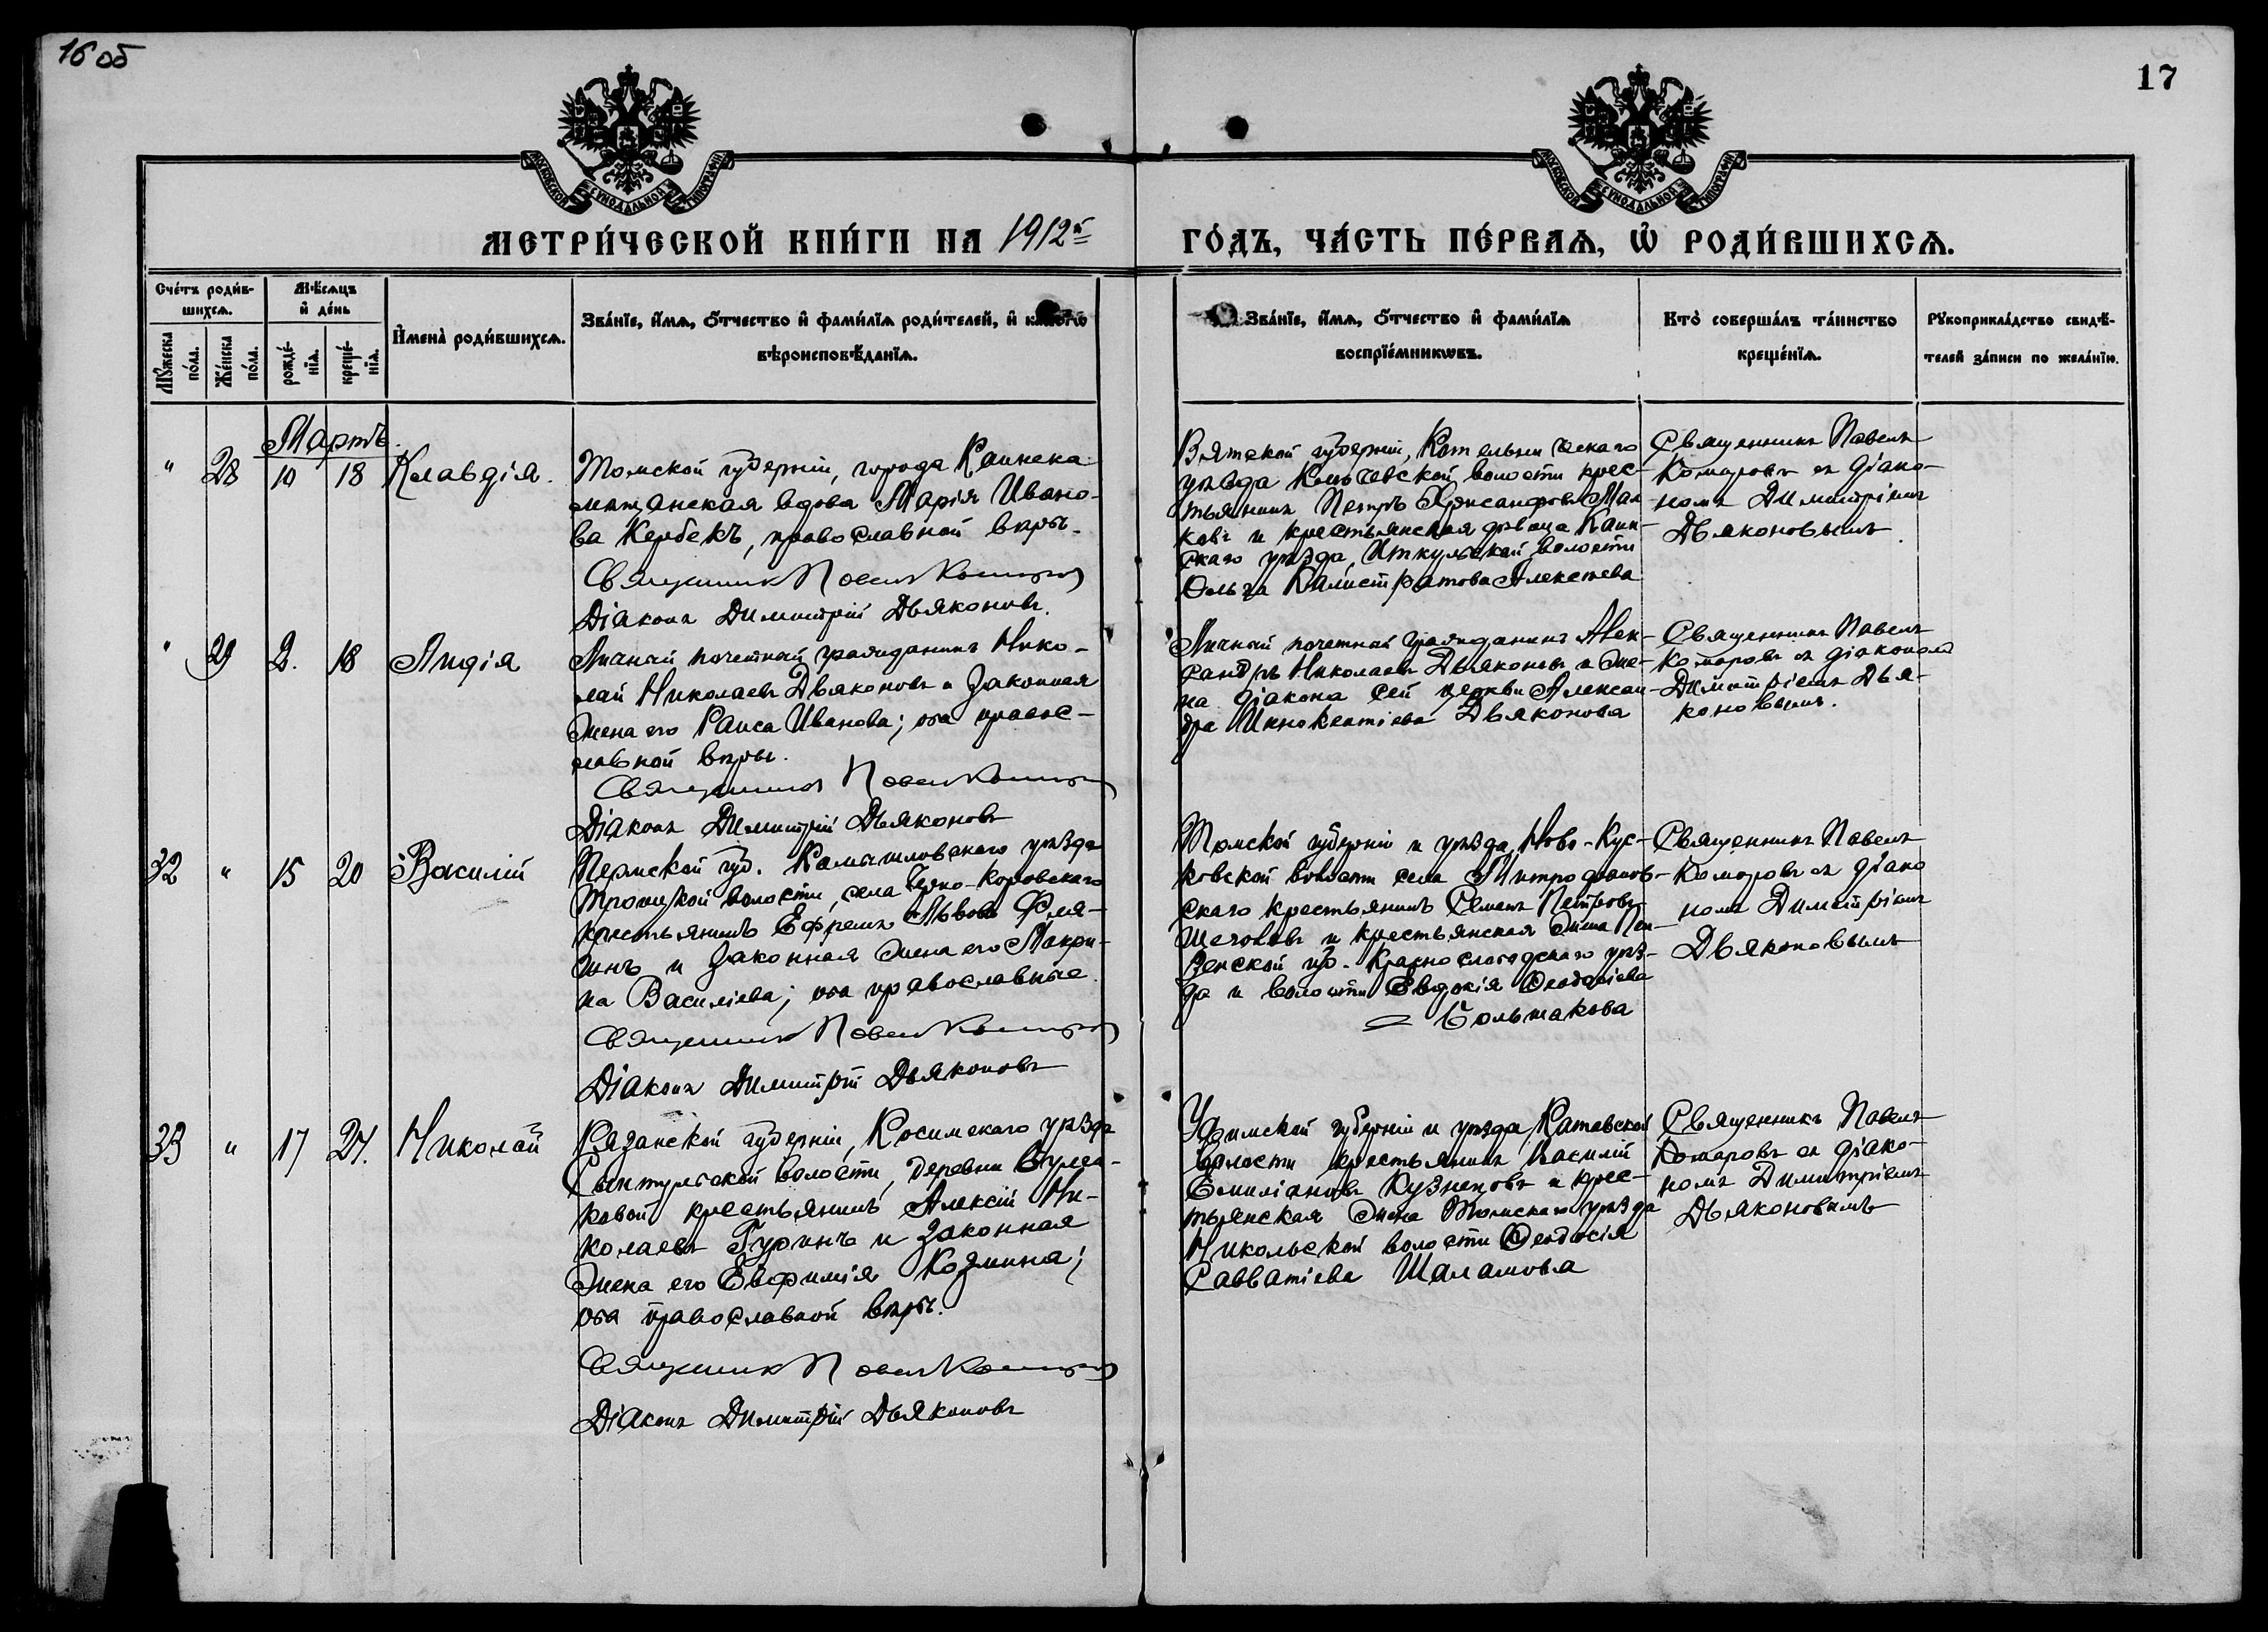 16 об
17
МОСКОВСКОЙ СѴНОДАЛЬНОЙ ТИПОГРАФІИ
МОСКОВСКОЙ СѴНОДАЛЬНОЙ ТИПОГРАФІИ
МЕТРИ́ЧЕСКОЙ КНИ́ГИ НА 1912й ГО́ДЪ, ЧА́СТЬ ПЕ́РВАѦ, Ѡ҆ РОДИ́ВШИХСѦ.
Сче́тъ роди́в-
шихсѧ.
Мꙋ́жеска по́ла.
Же́нска по́ла.
Мѣ́сѧцъ
и҆ де́нь
рожде́-
нїѧ.
креще́-
нїѧ.
И҆мена̀ роди́вшихсѧ.
Зва́нїе, и҆́мѧ, ѻ҆́тчество и҆ фами́лїѧ роди́телей, и҆ како́гѡ
вѣроисповѣ́данїѧ.
Зва́нїе, и҆́мѧ, ѻ҆́тчество и҆ фами́лїѧ
воспрїе́мникѡвъ.
Кто̀ соверша́лъ та́инство
креще́нїѧ.
Рꙋкоприкла́дство свидѣ́-
телей за́писи по жела́нїю.
Мартъ.
" 28 10 18 Клавдія.
Томской губерніи, города Каинска
мѣщанская вдова Марія Ивано-
ва Кербекъ, православной вѣры.
Священникъ Павелъ Комаровъ
Діаконъ Димитрій Дьяконовъ.
Вятской губерніи, Котельническаго
уѣзда волости крес-
тьянинъ Петръ Хрисанфовъ Мал-
ковъ и крестьянская дѣвица Каин-
скаго уѣзда, Иткульской волости
Ольга Калистратова Алексѣева
Священникъ Павелъ
Комаровъ съ діако-
номъ Димитріемъ
Дьяконовымъ.
" 29 2. 18 Лидія
Личный почетный гражданинъ Нико-
лай Николаевъ Дьяконовъ и законная
жена его Раиса Иванова; оба правос-
лавной вѣры.
Священникъ Павелъ Комаровъ
Діаконъ Димитрій Дьяконовъ
Личный почетный гражданинъ Алек-
сандръ Николаевъ Дьяконовъ и же-
на діакона сей церкви Алексан-
дра Иннокентіева Дьяконова
Священникъ Павелъ
Комаровъ съ діакономъ
Димитріемъ Дья-
коновымъ.
32 " 15 20 Василій
Пермской губ. Камышловскаго уѣзда
Троицкой волости, села Черно-Коровскаго
крестьянинъ Ефремъ Львовъ Фля-
жинъ и законная жена его Макри-
на Василіева; оба православные.
Священникъ Павелъ Комаровъ
Діаконъ Димитрій Дьяконовъ
Томской губерніи и уѣзда, Ново-Кус-
ковской волости села Митрофанов-
скаго крестьянинъ Семенъ Петровъ
и крестьянская жена Пен-
зенской губ. Краснослободскаго уѣз-
да и волости Евдокія Феодоріева
Большакова
Священникъ Павелъ
Комаровъ съ діако
номъ Димитріемъ
Дьяконовымъ
33 " 17 24. Николай
Рязанской губерніи, Косимскаго уѣзда
Сынтульской волости, деревни
ковой крестьянинъ Алексій Ни-
колаевъ Гуринъ и законная
жена его Евфимія Козмина;
оба православной вѣры.
Священникъ Павелъ Комаровъ
Діаконъ Димитрій Дьяконовъ
Уфимской губерніи и уѣзда, Катавской
волости крестьянинъ Василій
Емиліановъ Кузнецовъ и крес-
тьянская жена Томскаго уѣзда
Никольской волости Феодосія
Савватіева Шаламова
Священникъ Павелъ
Комаровъ съ діако-
номъ Димитріемъ
Дьяконовымъ